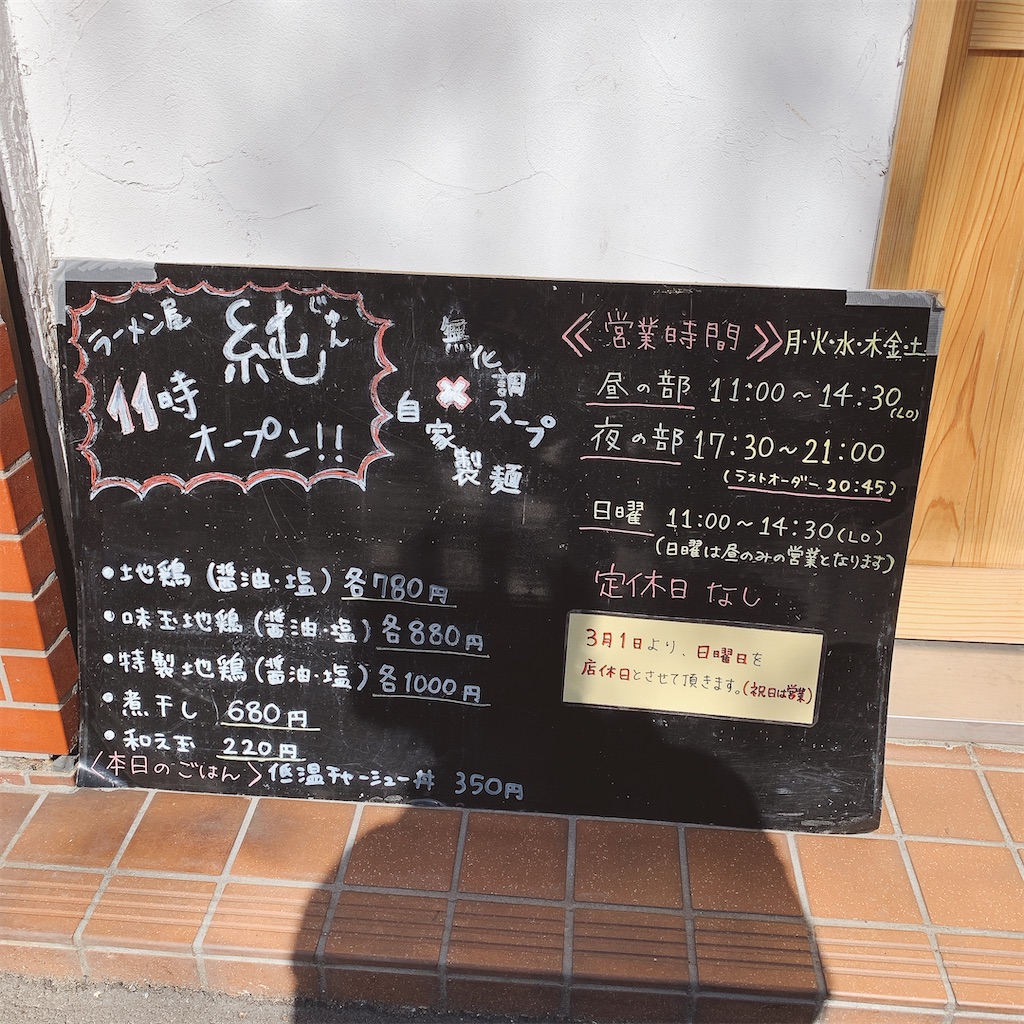 ラーメン屋 純 じゅん
11時
オープン!!
無化調スープ
×
自家製麺
・地鶏(醤油・塩)各780円
・味玉地鶏(醤油・塩)各880円
・特製地鶏(醤油・塩)各1000円
・煮干し 680円
・和え玉 220円
〈本日のごはん〉低温チャーシュー丼 350円
《営業時間》月・火・水・木・金・土
昼の部 11:00〜14:30(LO)
夜の部 17:30〜21:00
(ラストオーダー 20:45)
日曜 11:00〜14:30(LO)
(日曜は昼のみの営業となります)
定休日 なし
3月1日より、日曜日を
店休日とさせて頂きます。(祝日は営業)